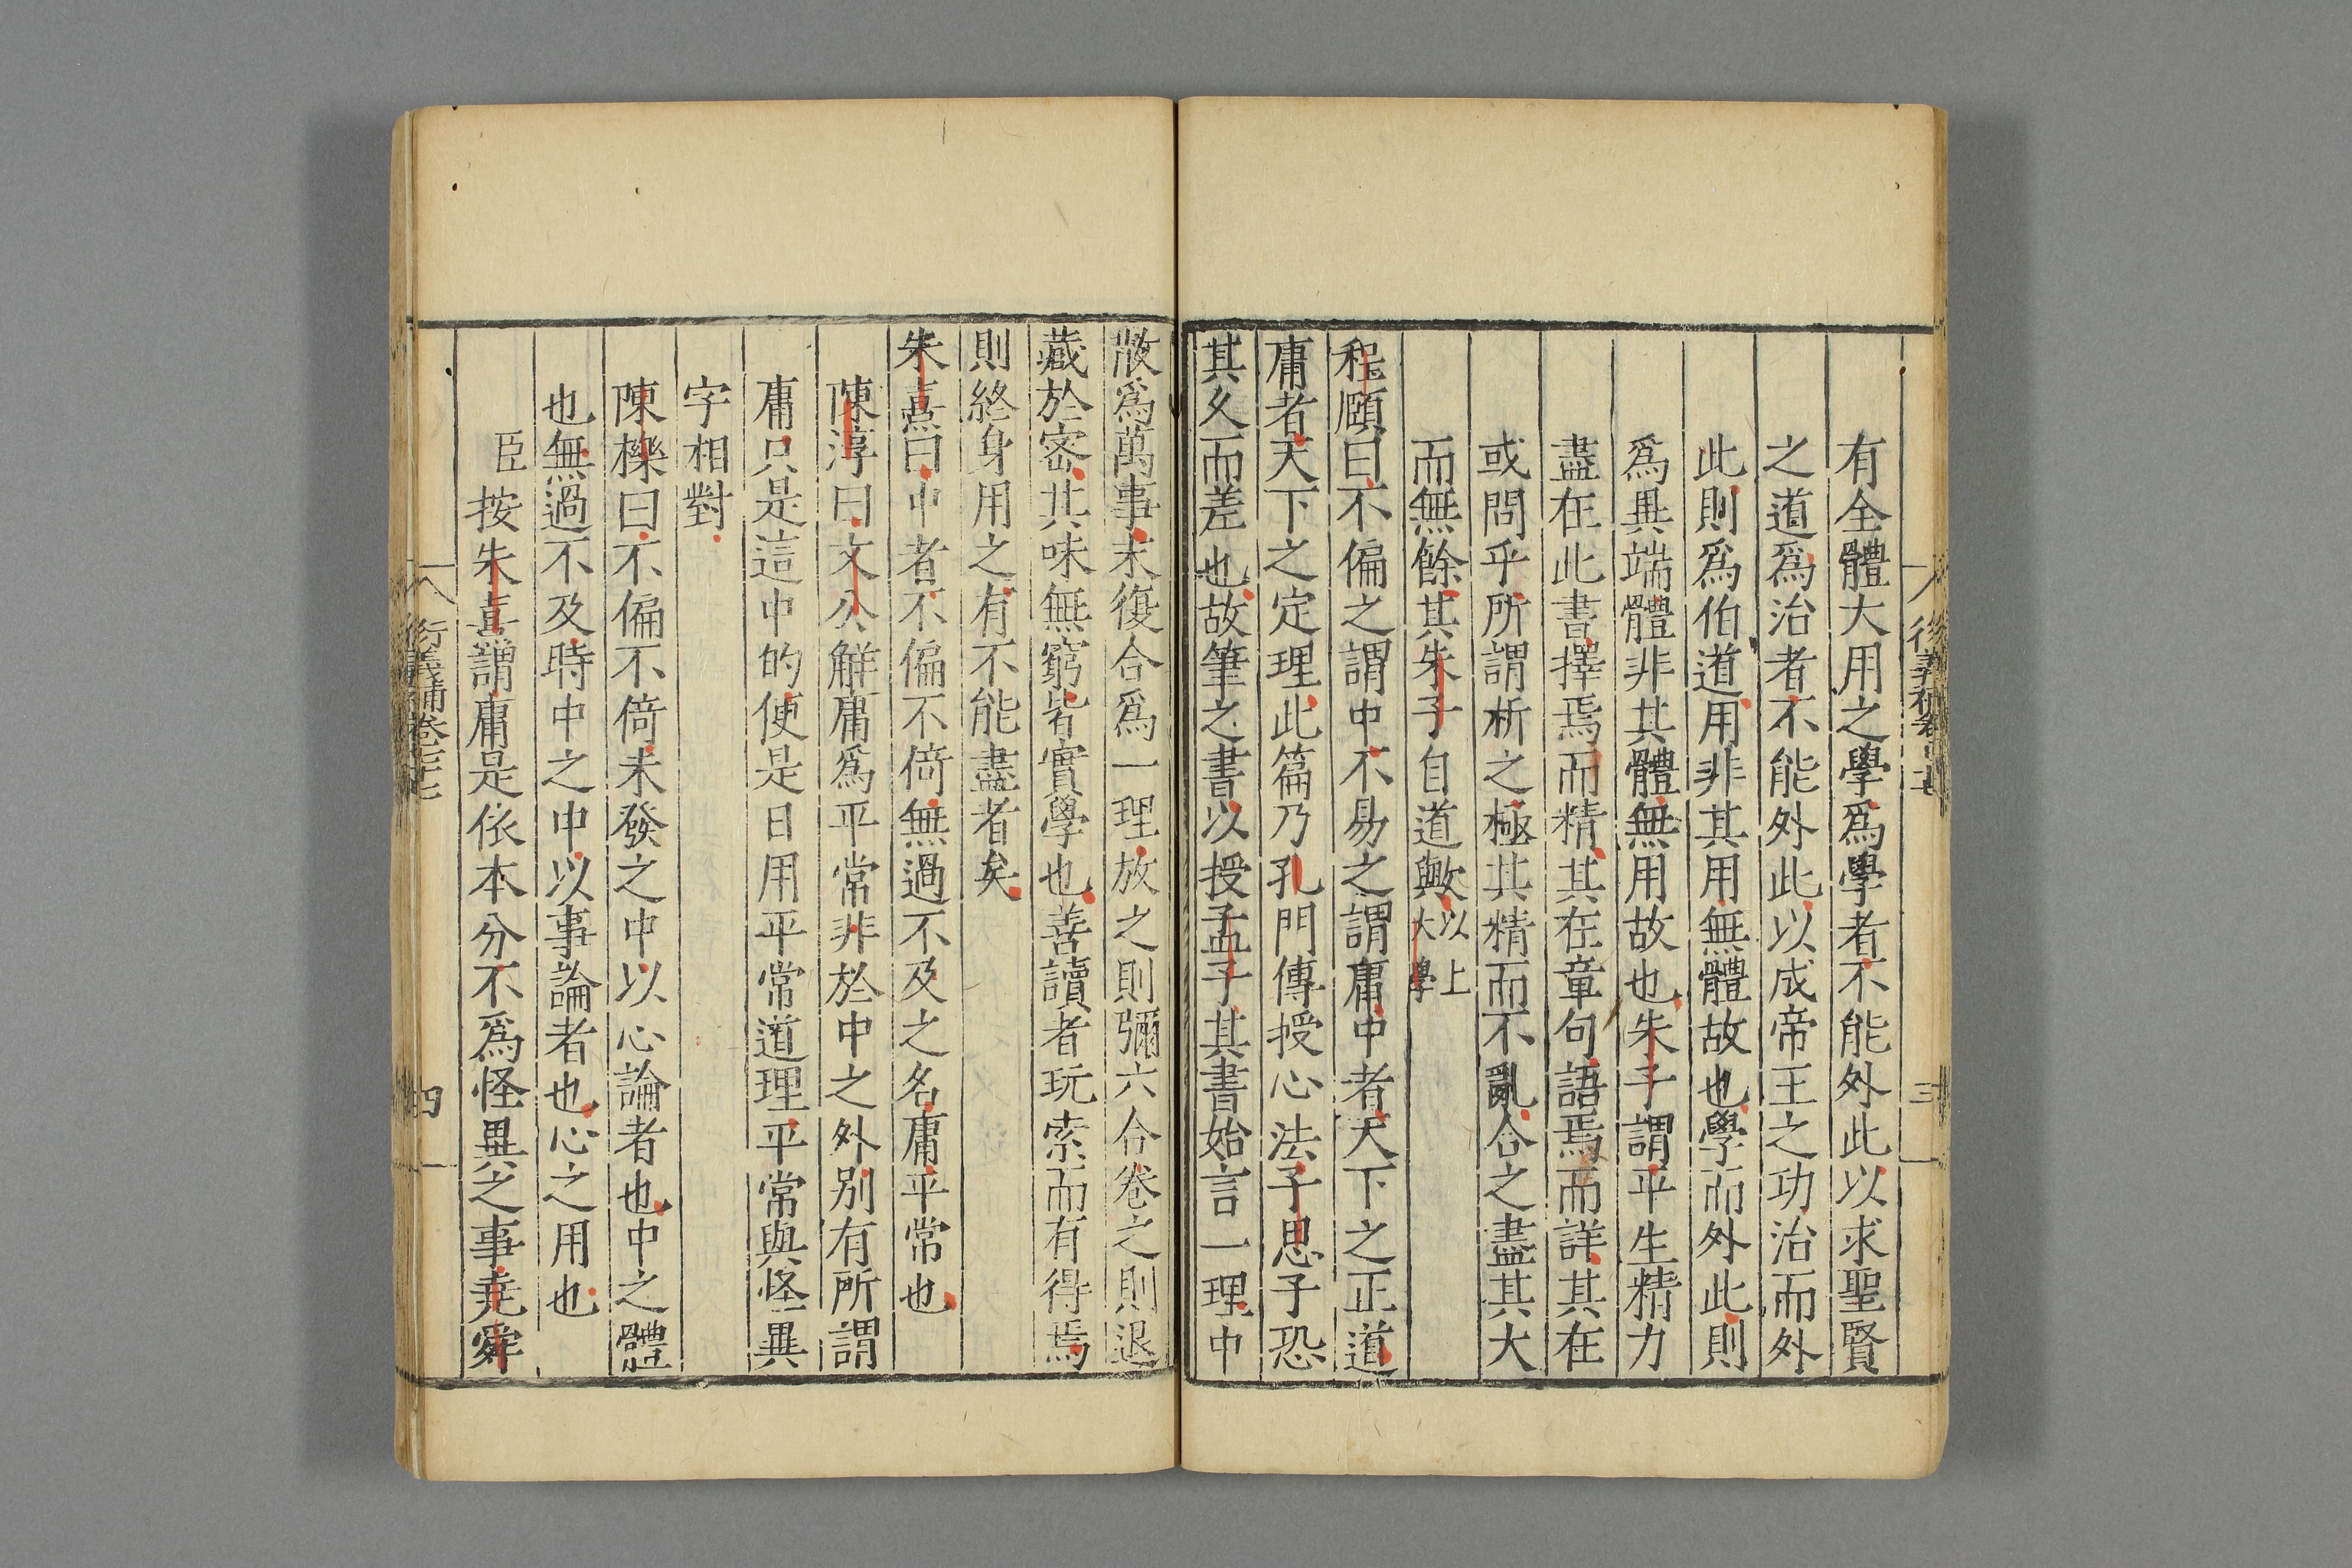 有全體大用之學爲學者不能外此以求聖賢
之道爲治者不能外此以成帝王之功治而外
此則爲伯道用非其用無體故也學而外此則
爲異端體非其體無用故也朱子謂平生精力
盡在此書擇焉而精其在章句語焉而詳其在
或問乎所謂析之極其精而不亂合之盡其大
而無餘其朱子自道歟以上大學
程頤曰不偏之謂中不易之謂庸中者天下之正道
庸者天下之定理此篇乃孔門傳授心法子思子恐
其久而差也故筆之書以授孟子其書始言一理中
散爲萬事末復合爲一理放之則彌六合卷之則退
藏於密其味無窮皆實學也善讀者玩索而有得焉
則終身用之有不能盡者矣
朱熹曰中者不偏不倚無過不及之名庸平常也
陳淳曰文公解庸爲平常非於中之外別有所謂
庸只是這中的便是日用平常道理平常與怪異
字相對
陳櫟曰不偏不倚未發之中以心論者也中之體
也無過不及時中之中以事論者也心之用也
臣按朱熹謂庸是依本分不爲怪異之事堯舜
衍義補卷七十七
四